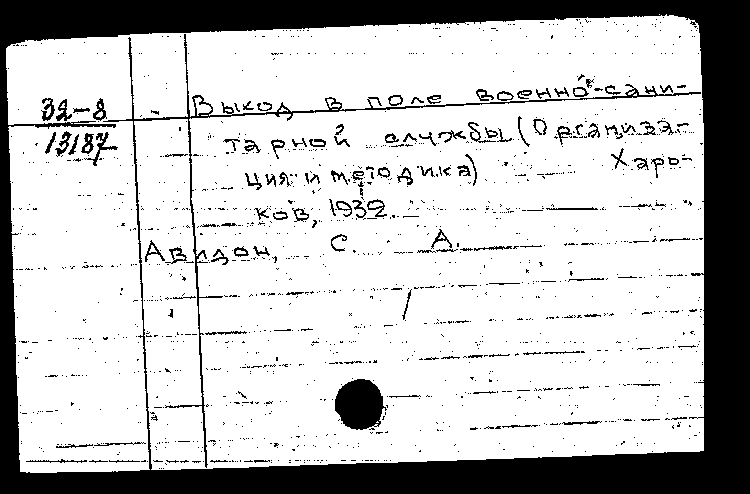 32-8 Выход в поле военно-сани-
13187 тарной службы (Организа-
ция и методика) Харь-
ков, 1932.
Авидон, С. А.